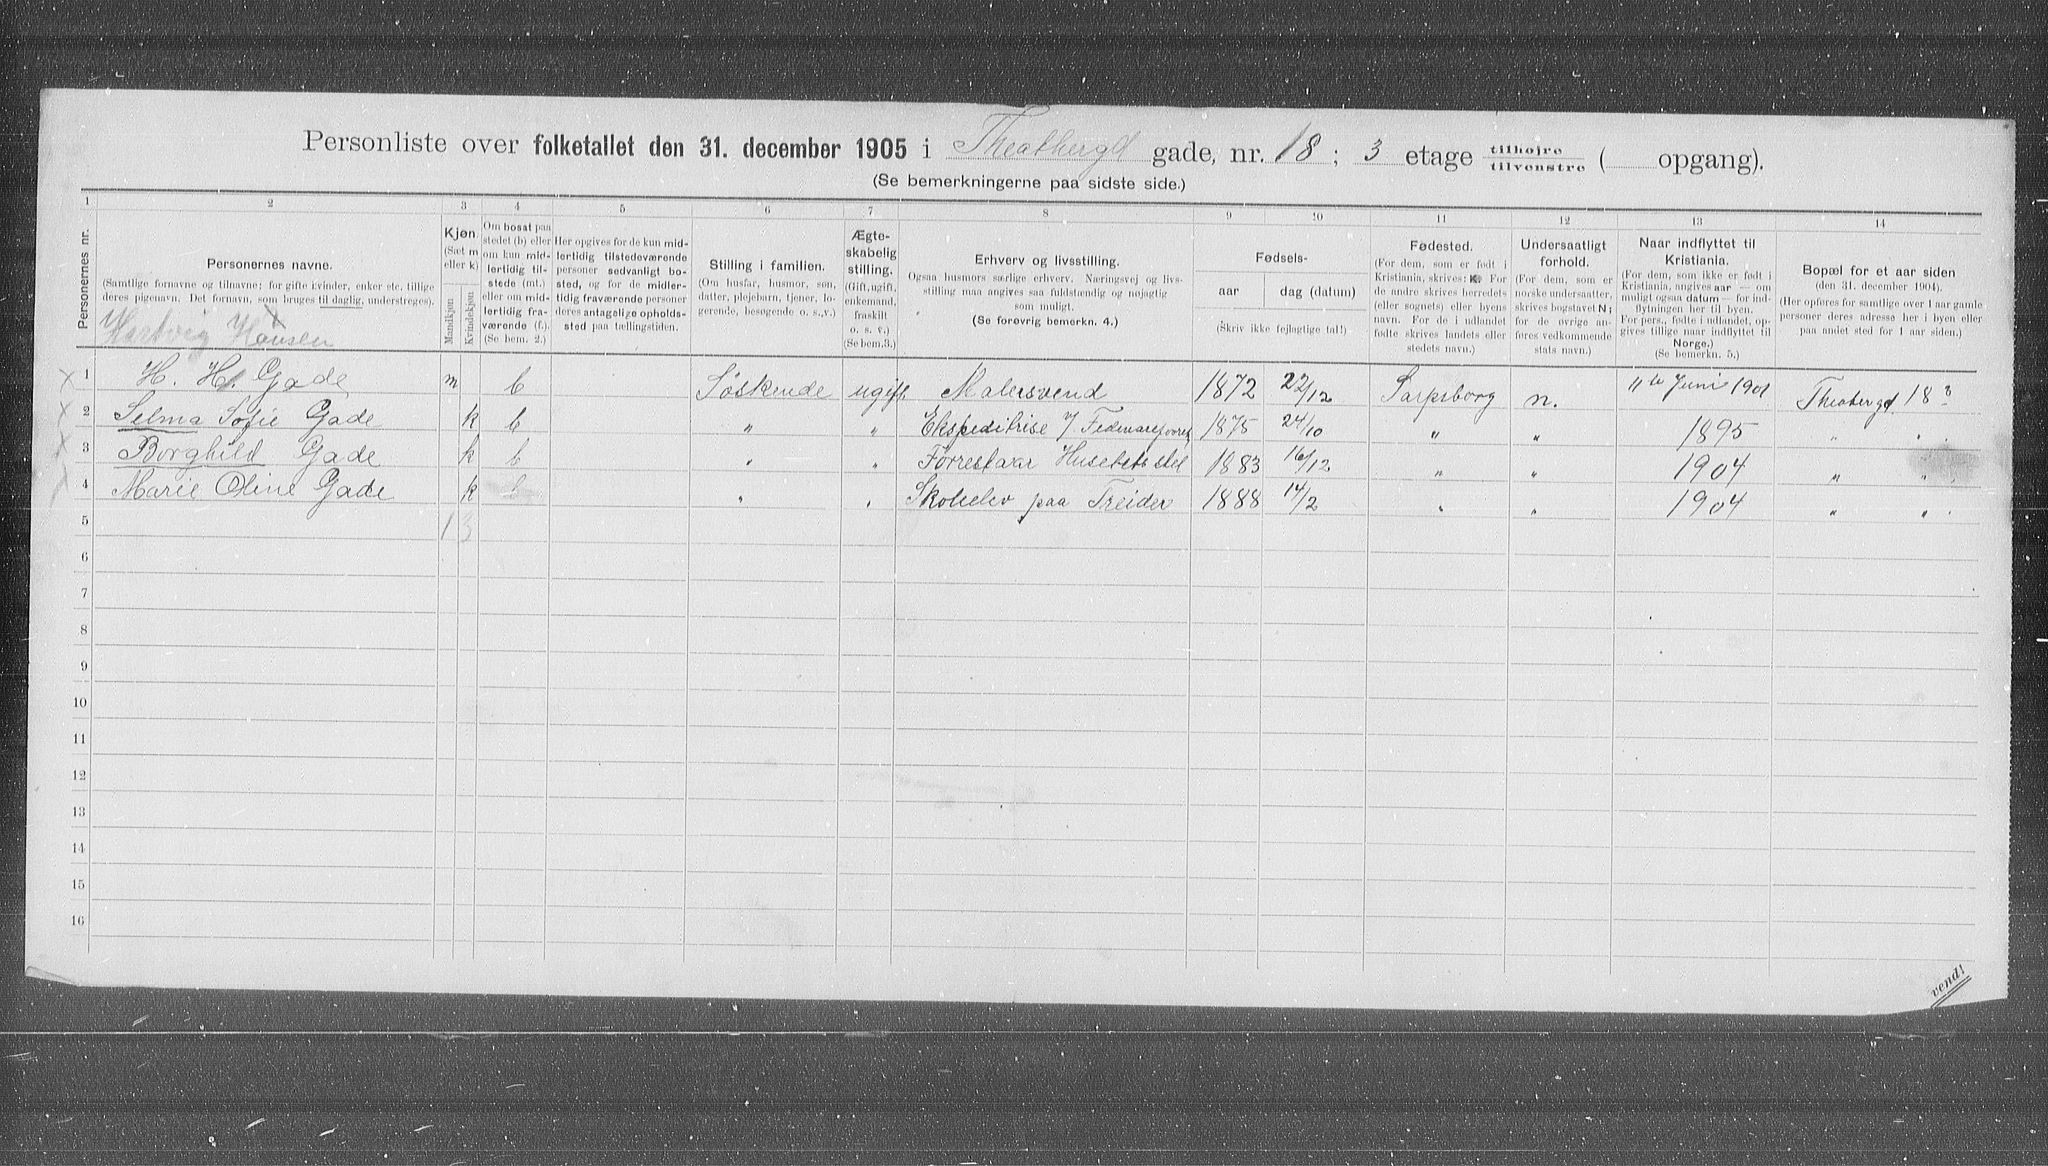 Personliste over folketallet den 31. december 1905 i Theatbergd gade, nr. 18 ; 3 etage tilhøjre tilvenstre ( opgang).
(Se bemerkningerne paa sidste side.)
1 2 3 4 5 6 7 8 9 10 11 12 13 14
Personernes nr.
Personernes navne.
(Samtlige fornavne og tilnavne; for gifte kvinder, enker etc. tillige deres pigenavn. Det fornavn, som bruges til daglig, understreges).
Hartvig Hansen
Kjøn.
(Sæt m eller k)
Mandkjøn
Kvindekjøn
Om bosat paa stedet (b) eller om kun midlertidig tilstede (mt.) eller om midlertidig fraværende (f.). (Se bem. 2.)
Her opgives for de kun midlertidig tilstedeværende personer sedvanligt bosted, og for de midlertidig fraværende personer deres antagelige opholdssted paa tællingstiden.
Stilling i familien.
(Om husfar, husmor, søn, datter, plejebarn, tjener, logerende, besøgende o. s. v.)
Ægteskabelig stilling.
(Gift, ugift, enkemand, fraskilt o. s. v.)
(Se bem. 3.)
Erhverv og livsstilling.
Ogsaa husmors særlige erhverv. Næringsvej og livsstilling maa angives saa fuldstændig og nøjagtig som muligt.
(Se forøvrig bemerkn. 4.)
Fødsels-
aar
dag (datum)
(Skriv ikke fejlagtige tal!)
Fødested.
(For dem, som er født i Kristiania, skrives: K. For de andre skrives herredets (eller sognets) eller byens navn. For de i udlandet fødte skrives landets eller stedets navn.)
Undersaatligt forhold.
(For dem, som er norske undersaatter, skrives bogstavet N; for de øvrige anføres vedkommende stats navn.)
Naar indflyttet til Kristiania.
(For dem, som ikke er født i Kristiania, angives aar — om muligt ogsaa datum — for indflytningen her til byen. For pers., fødte i udlandet, opgives tillige naar indflyttet til Norge.)
(Se bemerkn. 5.)
Bopæl for et aar siden
(den 31. december 1904).
(Her opføres for samtlige over 1 aar gamle personer deres adresse her i byen eller paa andet sted for 1 aar siden.)
1 H. H. Gade m b Søskende ugift Malersvend 1872 22/12 Sarpsborg n. 11te Juni 1901 Theatergd 18 3
2 Selma Sofie Gade k b " " Ekspeditrise 1875 24/10 " " 1895 " "
3 Borghild Gade k b " " Forrestaar Husets stel 1883 16/12 " " 1904 " "
4 Marie Oline Gade k b " " Skoleelev paa Treider 1888 14/2 " " 1904 " "
5 1 3
6
7
8
9
10
11
12
13
14
15
16
vend!